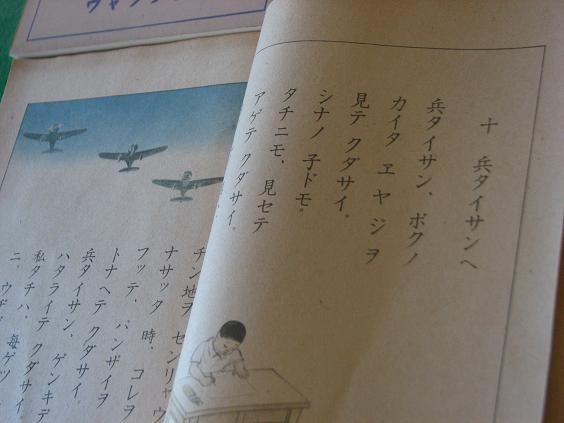 十 兵タイサンヘ
兵タイサン、ボクノ
カイタ ヱ ヤ ジヲ
見テ クダサイ。
シナノ 子ドモ
タチニモ、見セテ
アゲテ クダサイ。
チン地ヲ センリャウ
ナサッタ 時、コレヲ
フッテ、バンザイヲ
トナヘテ クダサイ。
兵タイサン、ゲンキデ
ハタライテ クダサイ。
私タチハ、毎ゲツ
ニ、